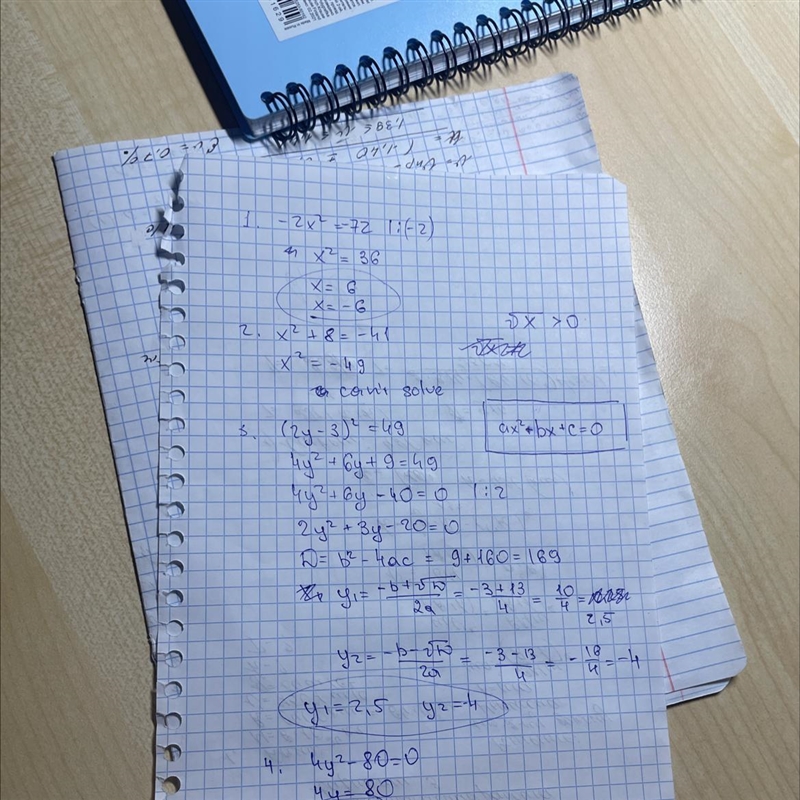 1. -2x² = -72 |:(-2)
x² = 36
x = 6
x = -6
2. x² + 8 = -41
√x > 0
x² = -49
can't solve
3. (2y-3)² = 49
ax²+bx+c=0
4y² + 6y + 9 = 49
4y² + 6y - 40 = 0 |:2
2y² + 3y - 20 = 0
D = b² - 4ac = 9 + 160 = 169
y₁ = (-b+√D)/2a = (-3+13)/4 = 10/4 = 2,5
y₂ = (-b-√D)/2a = (-3-13)/4 = -16/4 = -4
y₁ = 2,5 y₂ = -4
4. 4y² - 80 = 0
4y = 80